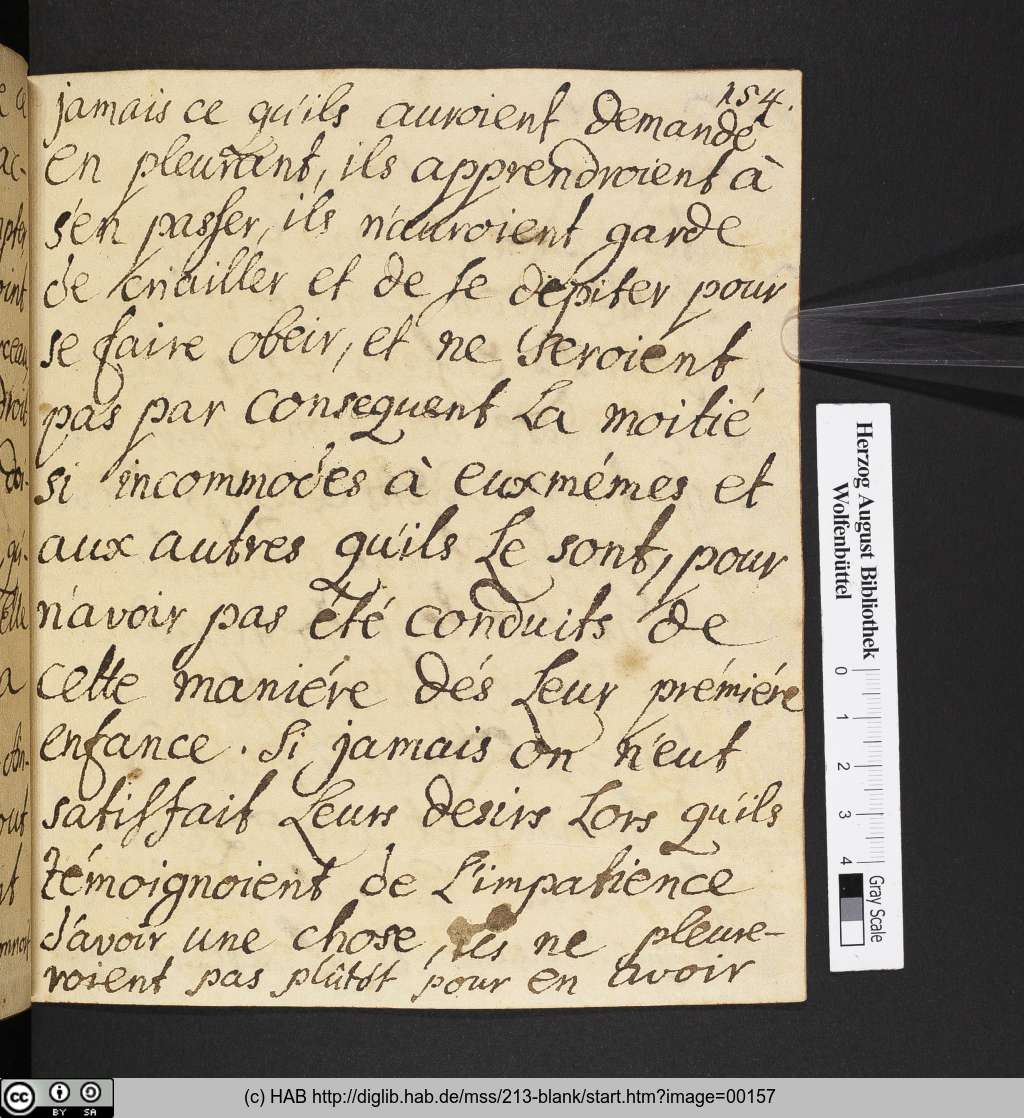 154.
jamais ce qu'ils auroient demandé
en pleurant, ils apprendroient à
s'en passer, ils n'auroient garde
de criailler et de se dépiter pour
se faire obeir, et ne seroient
pas par consequent la moitié
si incommodes à euxmémes et
aux autres qu'ils le sont, pour
n'avoir pas été conduits de
cette maniére dés leur prémiére
enfance. Si jamais on n'eut
satisfait leurs desirs lors qu'ils
témoignoient de l'impatience
d'avoir une chose, ils ne pleure-
roient pas plûtôt pour en avoir
Herzog August Bibliothek
Wolfenbüttel
0 1 2 3 4
Gray Scale
(c) HAB http://diglib.hab.de/mss/213-blank/start.htm?image=00157
cc BY SA